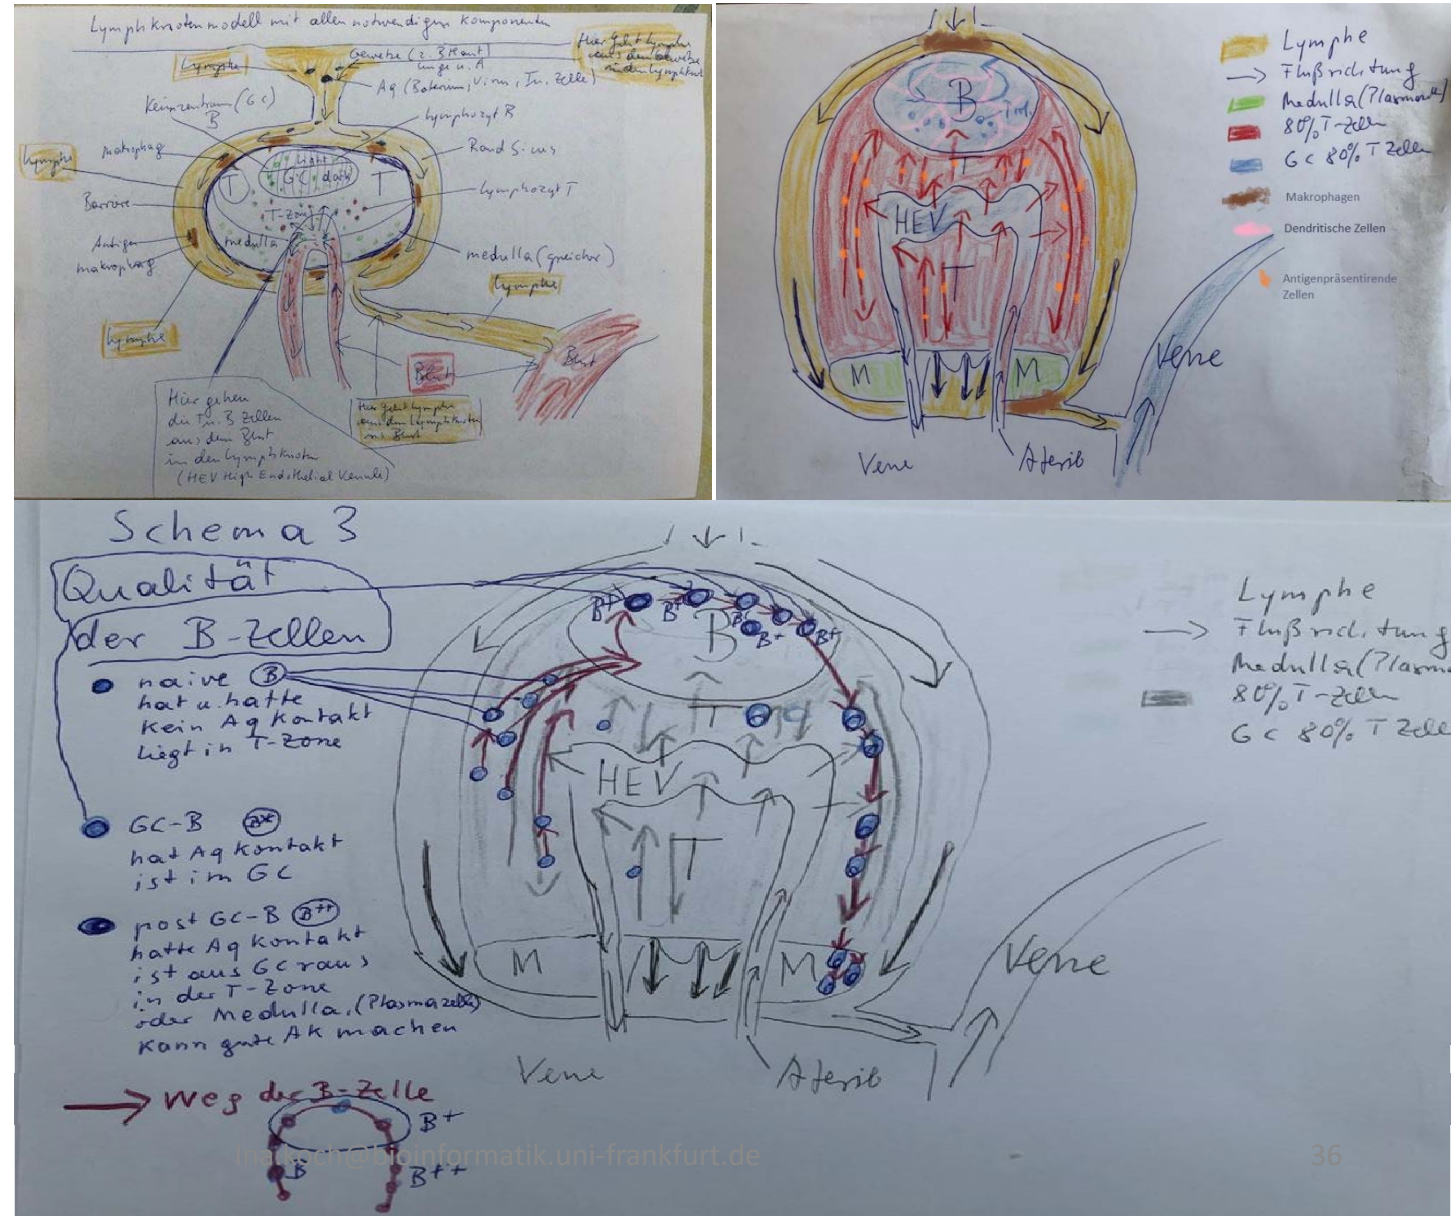 Lymphknotenmodell mit allen notwendigen Komponenten
Lymphe
Gewebe (z. B Haut)
Lunge u. A
Hier geht Lymphe
aus dem Gewebe
in den Lymphknot
Ag (Bakterium, Virus, Tu. Zelle)
Keimzentrum (GC)
B
Lymphozyt B
Lymphe
Makrophag
Rand Sinus
light
GC dark
T
T
Lymphozyt T
Barriere
T-zone
Antigen
makrophag
medulla
medulla (speicher)
Lymphe
Lymphe
Blut
Blut
Hier gehen
die T u. B Zellen
aus dem Blut
in den Lymphknoten
(HEV High Endothelial Venule)
Hier geht Lymphe
aus dem Lymphknoten
ins Blut
B
T
HEV
T
M
M
Vene
Vene
Aterie
Lymphe
Flußrichtung
Medulla (Plasmazell)
80% T-Zellen
GC 80% T Zellen
Makrophagen
Dendritische Zellen
Antigenpräsentirende
Zellen
Schema 3
Qualität
der B-Zellen
naive B
hat u. hatte
kein Ag Kontakt
liegt in T-Zone
GC-B B+
hat Ag Kontakt
ist im GC
post GC-B B++
hatte Ag Kontakt
ist aus GC raus
in der T-Zone
oder Medulla, (Plasmazelle)
kann gute AK machen
Weg der B-Zelle
B+
B
B++
B+
B+
B+
B+
B+
B
T
HEV
T
M
M
Vene
Vene
Aterie
Lymphe
Flußrichtung
Medulla (Plasma
80% T-Zellen
GC 80% T Zelle
ina.koch@bioinformatik.uni-frankfurt.de
36